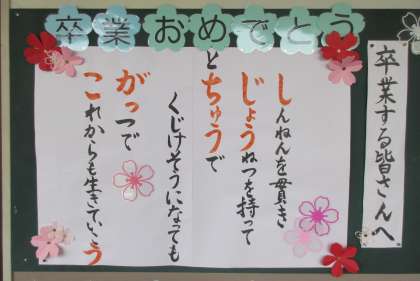 卒業おめでとう
卒業する皆さんへ
しんねんを貫き
じょうねつを持って
とちゅうで
くじけそうになっても
がっつで
これからも生きていこう